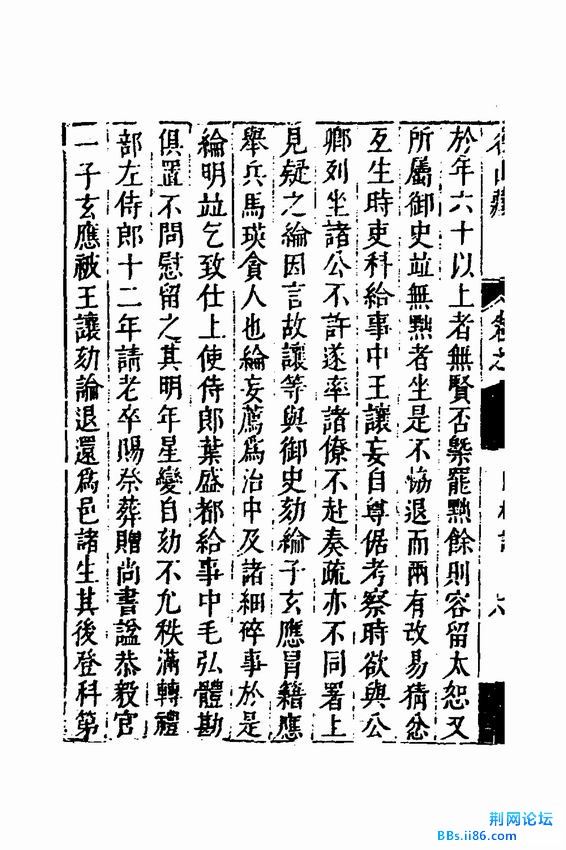 名山藏
於年六十以上者無賢否槩罷黜餘則容留太恕又
所屬御史並無黜者坐是不恊退而兩有改易猜忿
互生時吏科給事中王讓妄自尊倨考察時欲與公
卿列坐諸公不許遂率諸僚不赴奏疏亦不同署上
見疑之綸因言故讓等與御史劾綸子玄應冒籍應
舉兵馬瑛貪人也綸妄薦爲治中及諸細碎事於是
綸明並乞致仕上使侍郎葉盛都給事中毛弘體勘
俱置不問慰留之其明年星變自劾不允秩滿轉禮
部左侍郎十二年請老卒賜祭葬贈尚書謚恭毅官
一子玄應被王讓劾論退還爲邑諸生其後登科第
荆网论坛
BBs.ii86.com